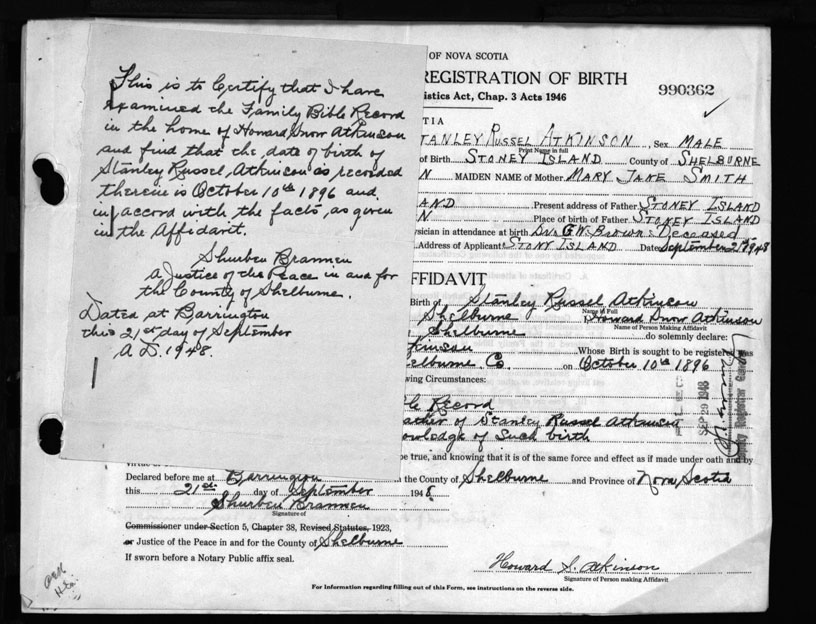 This is to Certify that I have
examined the Family Bible Record
in the home of Howard Snow Atkinson
and find that the date of birth of
Stanley Russel Atkinson as recorded
therein is October 10th 1896 and
in accord with the facts, as given
in the Affidavit.
a Justice of the Peace in and for
the County of Shelburne.
Dated at Barrington
this 21st day of September
A.D. 1948.
OF NOVA SCOTIA
REGISTRATION OF BIRTH
990362
istics Act, Chap. 3 Acts 1946
TIA
TANLEY RUSSEL ATKINSON, Sex MALE
Print Name in full
of Birth STONEY ISLAND County of SHELBURNE
N MAIDEN NAME of Mother MARY JANE SMITH
AND Present address of Father STONEY ISLAND
N Place of birth of Father STONEY ISLAND
ysician in attendance at birth Dr. G.W. Brown: Deceased
Address of Applicant STONY ISLAND Date September 21 1948
FFIDAVIT
Birth of Stanley Russel Atkinson
Name in Full
Shelburne Howard Snow Atkinson
Name of Person Making Affidavit
Shelburne do solemnly declare:
kinson Whose Birth is sought to be registered was
elburne Co. on October 10th 1896
wing Circumstances:
le Record
ather of Stanley Russel Atkinson
owledge of Such birth
SEP 29 1948
be true, and knowing that it is of the same force and effect as if made under oath and by
Declared before me at Barrington the County of Shelburne and Province of Nova Scotia
this 21st day of September 1948
Signature of
Commissioner under Section 5, Chapter 38, Revised Statutes, 1923,
or Justice of the Peace in and for the County of Shelburne
If sworn before a Notary Public affix seal.
Howard S. Atkinson
Signature of Person making Affidavit
For Information regarding filling out of this Form, see instructions on the reverse side.